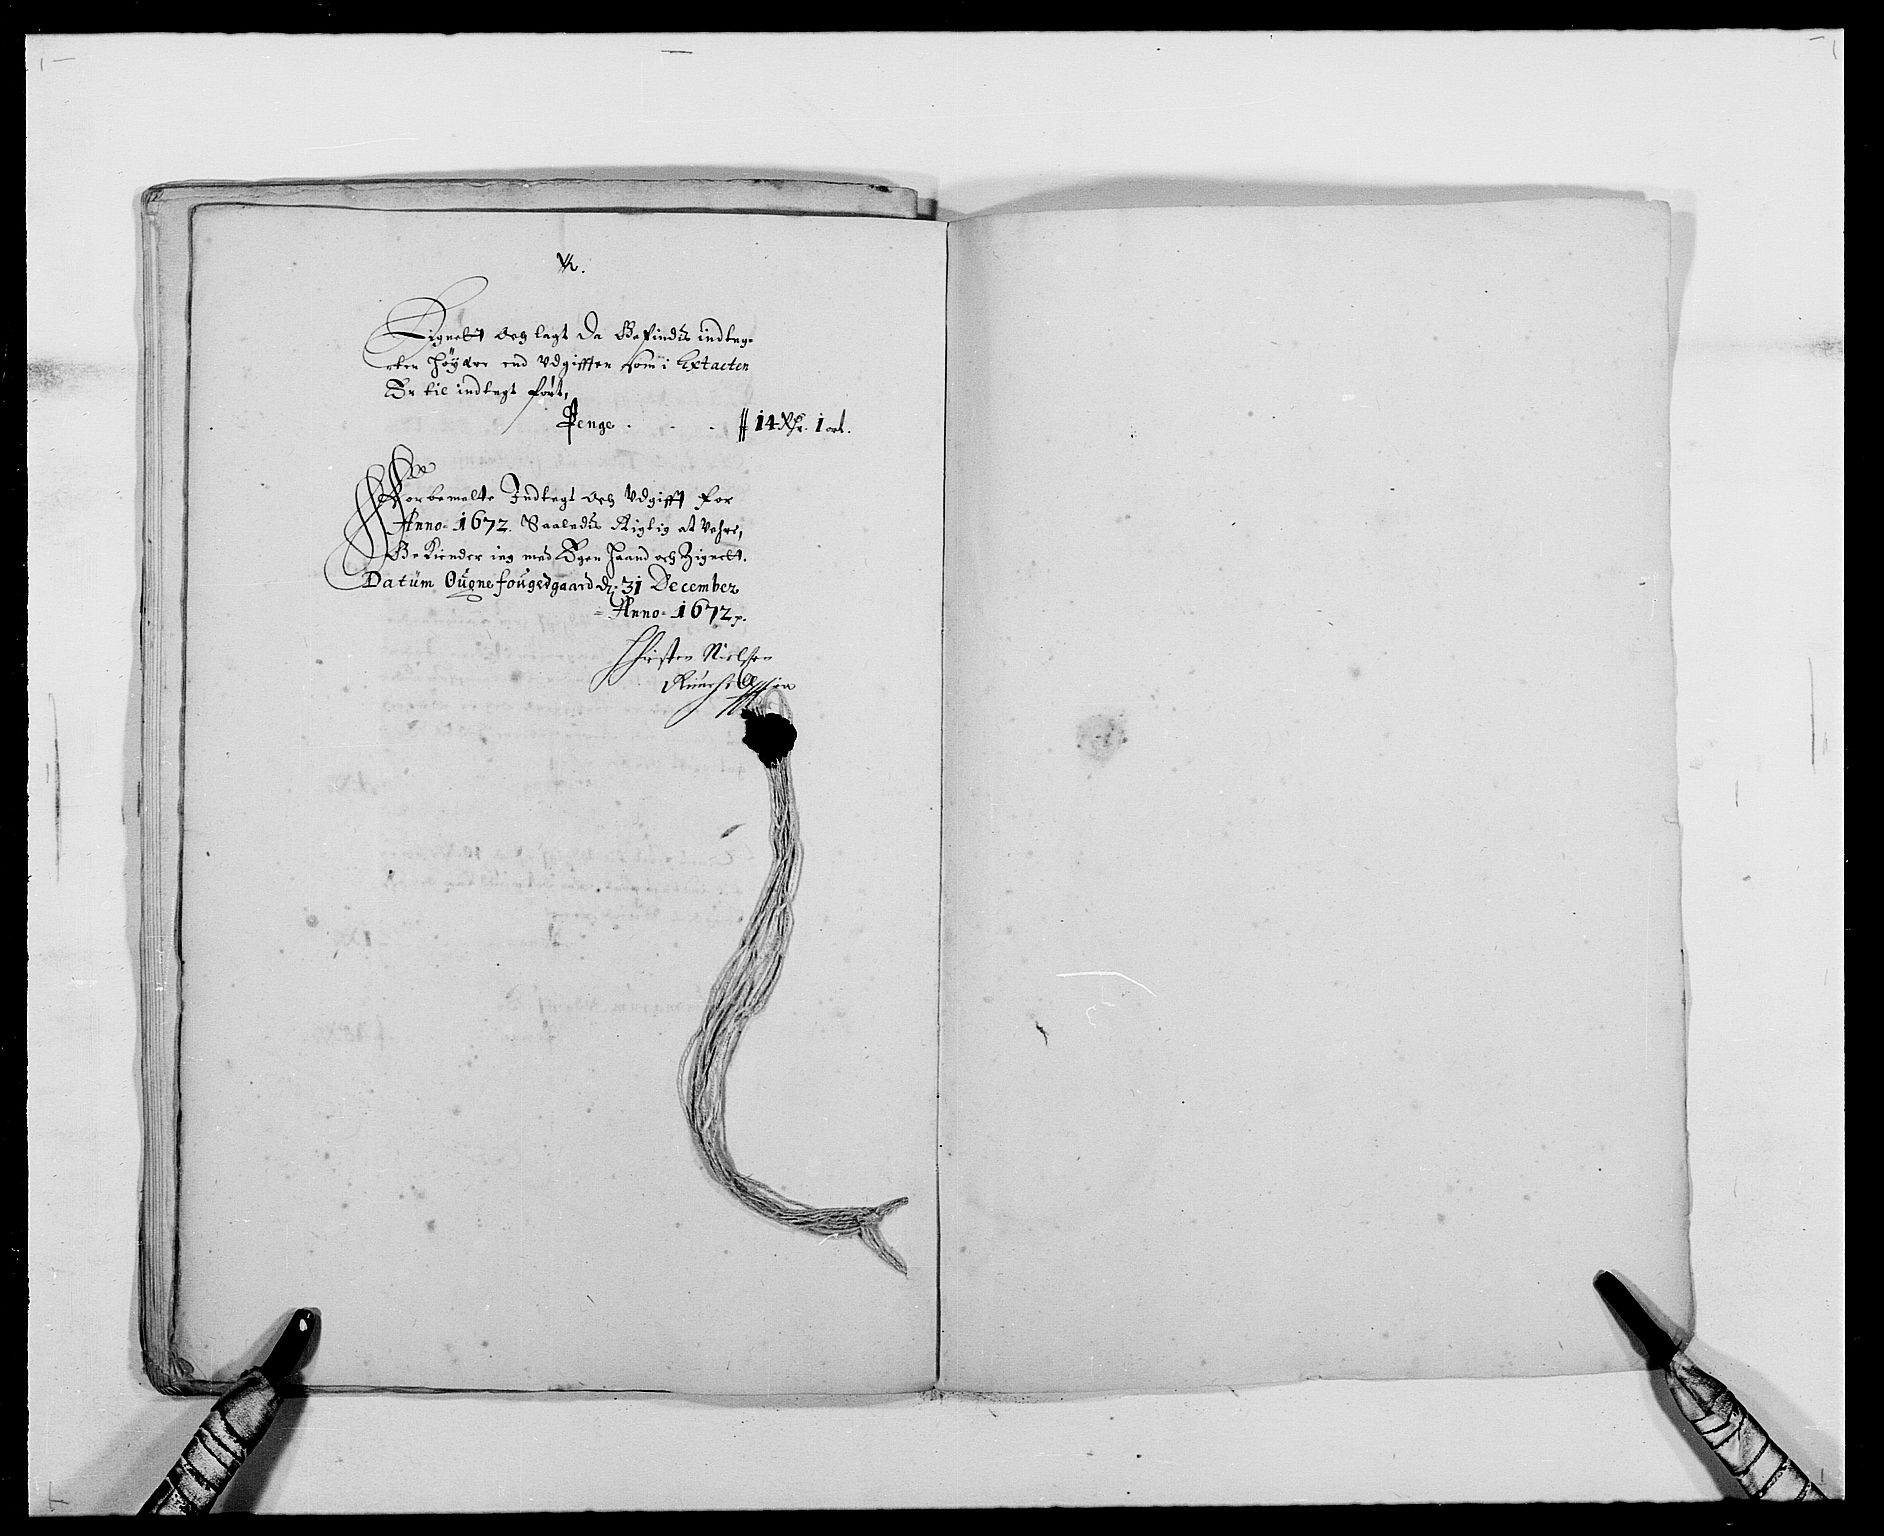 Lignelt och lagt Da Befindis indteg-
ten höyere end Udgifften som i Extacten
Er til indtegt fört,
Penge . . . # 14 Rdr. 1 ort.
Forbemelte Indtegt och Udgifft for
Anno 1672. Saaledis Rigtig at Vehre,
Bekiender ieg med Egen Haand och Zignelt.
Datüm Oügne fougedgaard d. 31 December
Anno 1672.
Nielsen